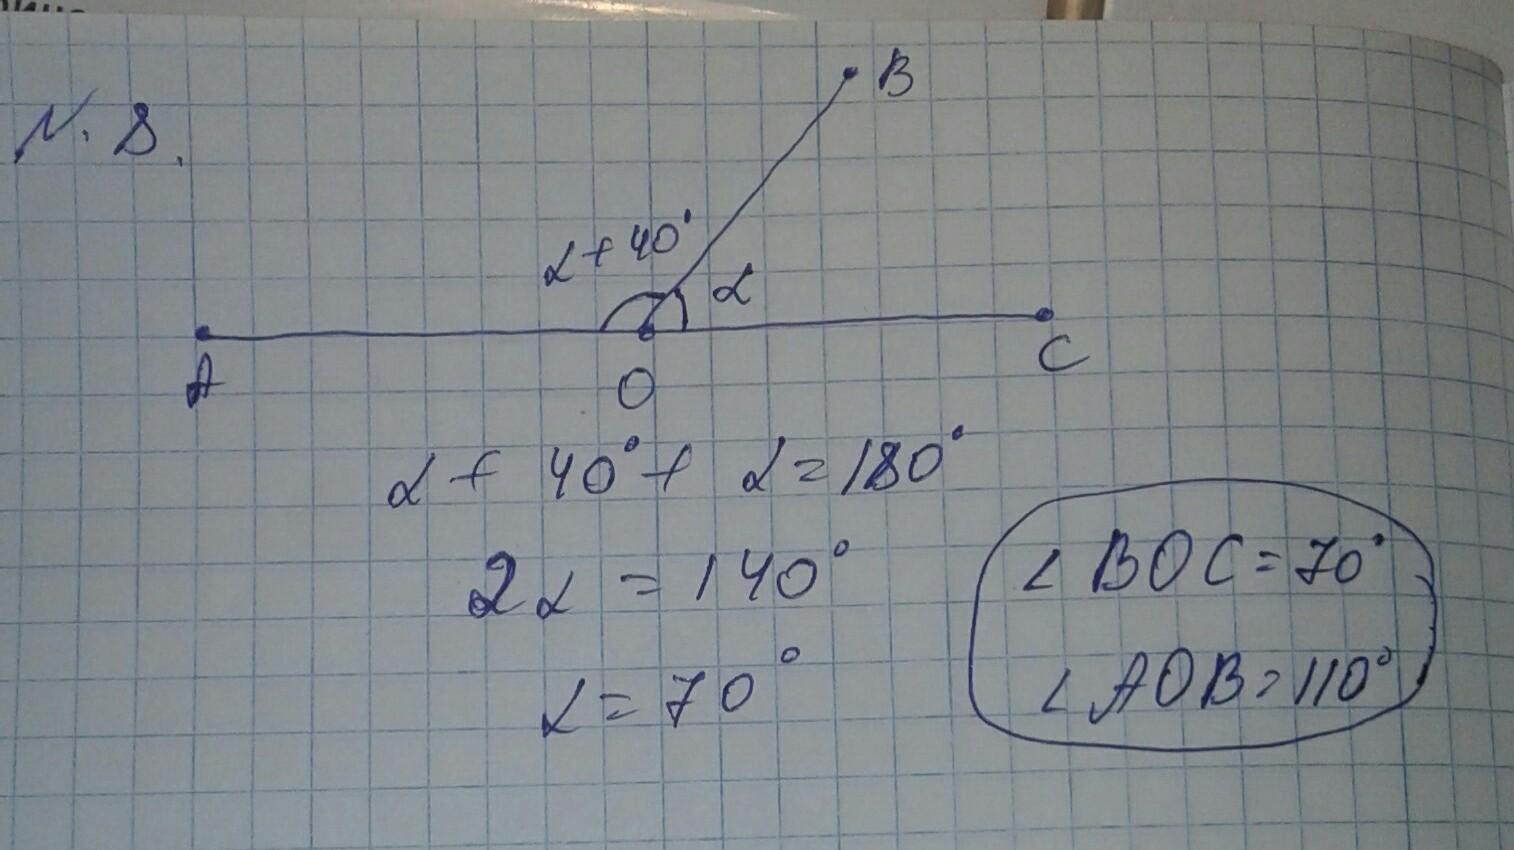 N. 8.
B
α + 40°
α
A
O
C
α + 40° + α = 180°
2α = 140°
α = 70°
∠ BOC = 70°
∠ AOB = 110°